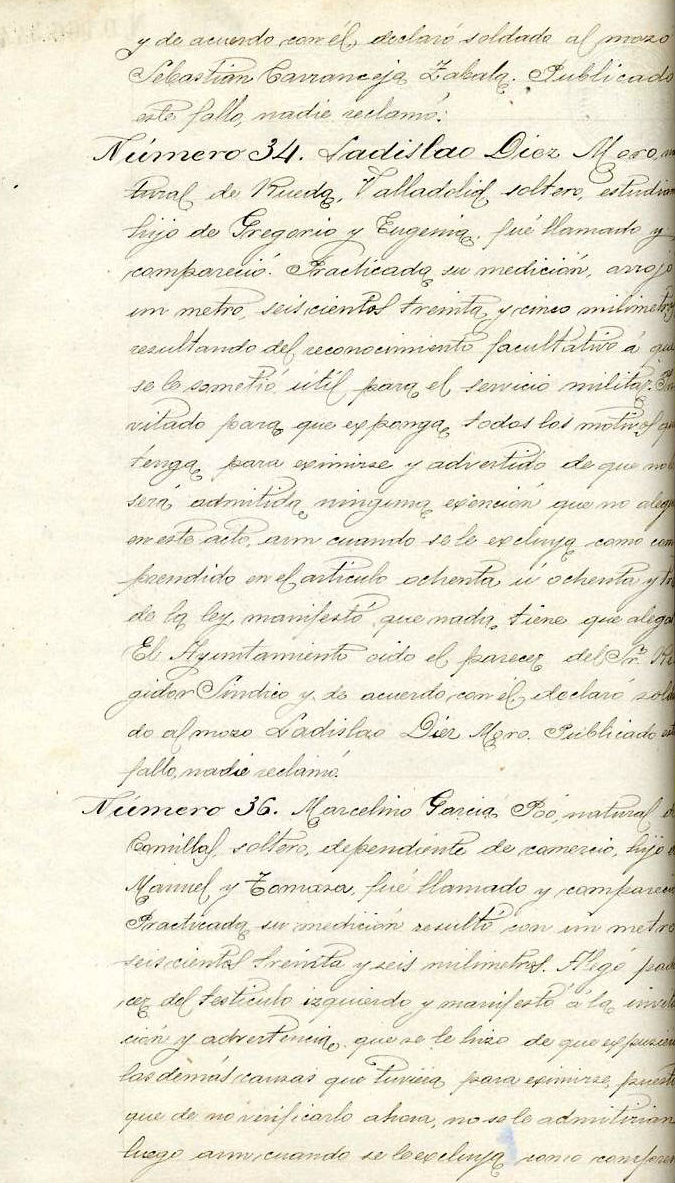 y de acuerdo con él, declaró soldado al mozo
Sebastián Carranceja Zabala. Publicado
este fallo, nadie reclamó.
Número 34. Ladislao Diez Moro, na
tural de Rueda, Valladolid, soltero, estudian
hijo de Gregorio y Eugenia, fué llamado y
compareció. Practicada su medición, arrojó
un metro, seiscientos treinta y cinco milimetros
resultando del reconocimiento facultativo á que
se le sometió útil para el servicio militar. In
vitado para que exponga todos los motivos que
tenga para eximirse y advertido de que no le
será admitida ninguna exención que no alegu
en este acto, aun cuando se le excluya como com
prendido en el artículo ochenta ú ochenta y tr
de la ley, manifestó que nada tiene que alegar
El Ayuntamiento oido el parecer del Sr. Re
gidor Síndico y de acuerdo con él, declaró solda
do al mozo Ladislao Diez Moro. Publicado este
fallo, nadie reclamó.
Número 36. Marcelino Garcia Poó, natural de
Comillas, soltero, dependiente de comercio, hijo de
Manuel y Tomasa, fué llamado y compareció
Practicada su medición resultó con un metro
seiscientos treinta y seis milimetros. Alegó pade
cer del testículo izquierdo y manifestó á la invita
ción y advertencia que se le hizo de que expusiera
las demás causas que tuviera para eximirse, puesto
que de no verificarlo ahora, no se le admitirian
luego aun cuando se le excluya como compren